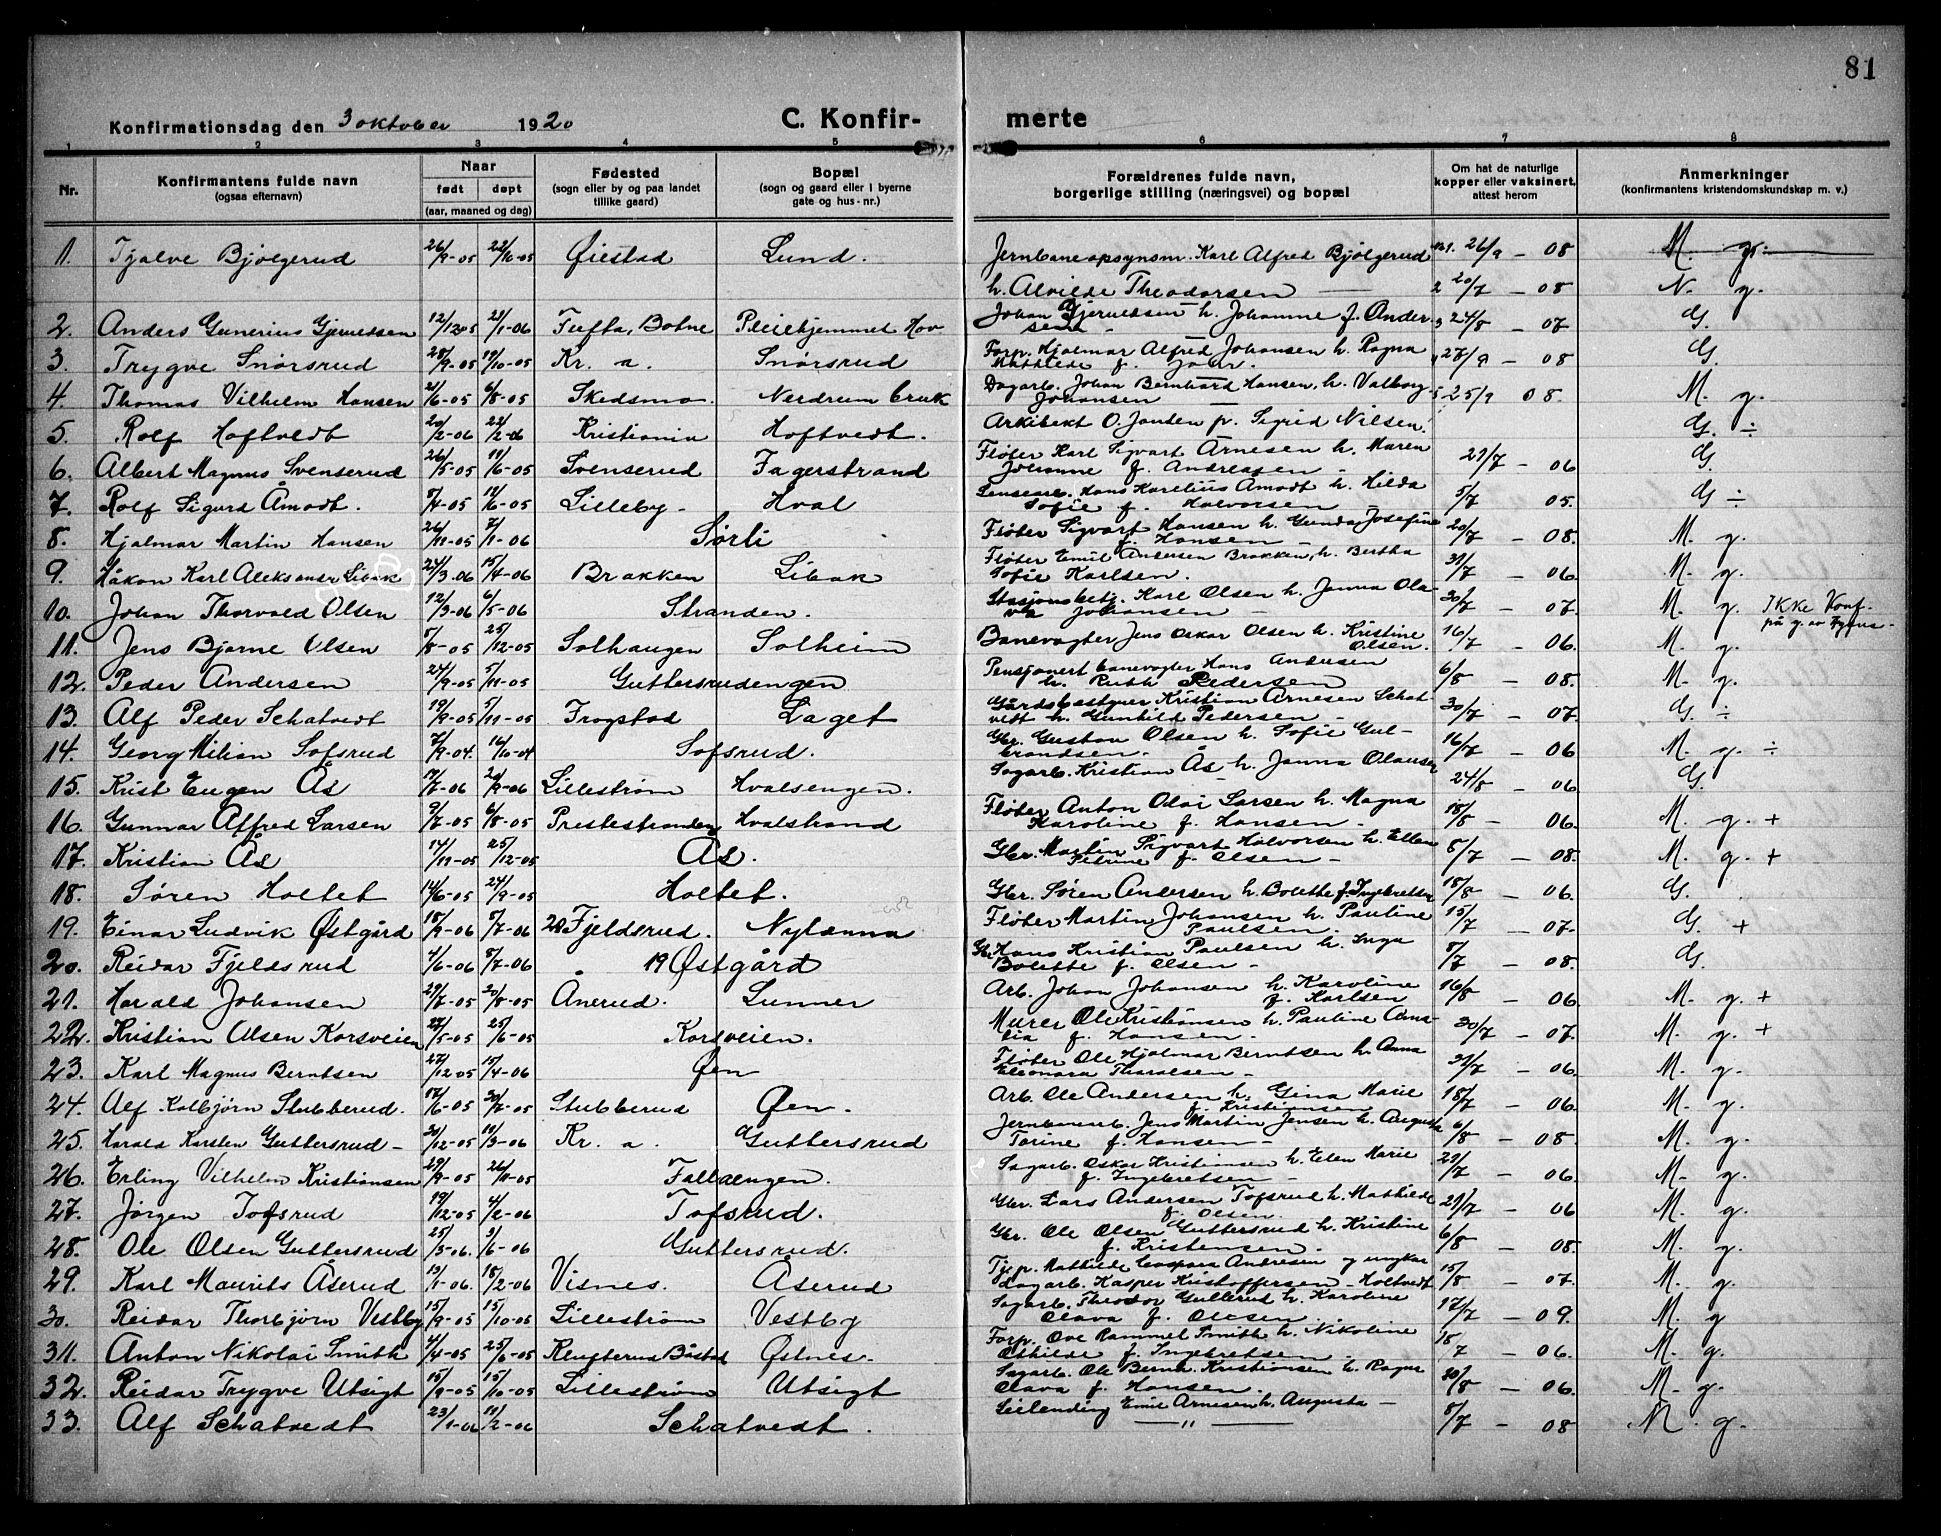 81
Konfirmationsdag den 3 oktober 1920 C. Konfir- merte
1 2 3 4 5 6 7 8
Nr. Konfirmantens fulde navn (ogsaa efternavn) Naar født døpt (aar, maaned og dag) Fødested (sogn eller by og paa landet tillike gaard) Bopæl (sogn og gaard eller i byerne gate og hus-nr.) Forældrenes fulde navn, borgerlige stilling (næringsvei) og bopæl Om hat de naturlige kopper eller vaksinert, attest herom Anmerkninger (konfirmantens kristendomskundskap m. v.)
1. Tjalve Bjølgerud 26/9-05 22/10-05 Øiestad Lund. Jernbaneopsynsm. Karl Alfred Bjølgerud 26/9 - 08 M. g.
h. Alvilde Theodorsen 2 20/7 - 08 N. g.
2. Anders Gunerius Gjeruldsen 12/12 05 21/1-06 Tufta, Botne Pleiehjemmet Hov Johan Gjeruldsen h. Johanne f. Andersen - 3 24/8 - 07 G.
3. Trygve Snørsrud 28/9-05 19/10-05 Kr. a. Snørsrud Forp. Hjalmar Alfred Johansen h. Ragna Mathilde f. 27/9 - 08 G.
4. Thomas Vilhelm Hansen 21/6-05 6/8-05 Skedsmo. Nerdrum bruk Dagarb. Johan Bernhard Hansen, h. Valborg Johansen 5 25/9 08. M. g.
5. Rolf Hoftvedt 20/2-06 22/2-06 Kristiania Hoftvedt. Arkitekt O. Janden pr. Sigrid Nilsen. G. ÷
6. Albert Magnus Svenserud 26/5-05 11/6-05 Svenserud Fagerstrand Fløter Karl Sigvart Arnesen h. Maren Johanne f. Andreasen - 29/7 - 06 G.
7. Rolf Sigurd Åmodt. 8/4-05 12/6-05 Lilleby - Hval Hans Karelius Amodt h. Hilda Sofie f. Halvorsen 5/7 05. G ÷
8. Hjalmar Martin Hansen 26/11-05 7/1-06 Sørli Fløter Sigvart Hansen h. Gunda Josefine f. Hansen - 20/7 - 08. M. g.
9. Håkon Karl Aleksander Libak 24/3-06 15/4-06 Brakken Libak Fløter Emil Andersen Brakken, h. Bertha Sofie Karlsen. 31/7 - 06. M. g.
10. Johan Thorvald Olsen 12/3-06 6/5-06 Stranden. Stasjonsbetj. Karl Olsen h. Janna Olava Johansen - 30/7 - 07. M. g. Ikke Konf. på g. av
11. Jens Bjarne Olsen 8/8-05 25/12-05 Solhaugen Solheim Banevogter Jens Oskar Olsen h. Kristine Olsen. 16/7 - 06. M. g.
12. Peder Andersen 24/9-05 5/11-05 Guttersrudengen Pensjonert banevogter Hans Andersen h. Ruth Pedersen 6/8 - 08. M. g.
13. Alf Peder Schatvedt 19/9-05 5/11-05 Frogstad Laget Gårdsbestyrer Kristian Arnesen Schatvedt h. Gunhild Pedersen - 30/7 - 07. G. ÷
14. Georg Milian Sofsrud 7/9-04. 16/10-04 Sofsrud. Gbr. Gustav Olsen h. Sofie Gulbrandsen. 16/7 - 06 M. g. ÷
15. Krist Eugen Ås 17/7-06 2/9-06 Lillestrøm Hvalsengen. Sagarb. Kristian Ås h. Janna Olausen 24/8 - 06 G.
16. Gunnar Alfred Larsen 9/7-05 6/8-05 Prestestranden Hvalstrand Fløter Anton Odai Larsen h. Magna Karoline f. Hansen - 18/8 - 06. M. g. +
17. Kristian Ås 14/11-05 25/12-05 Ås. Gbr. Martin Sigvart Halvorsen h. Ellen Petrine f. Olsen - 8/7 - 08. M. g. +
18. Søren Holtet 14/6-05 24/9-05 Holtet. Gbr. Søren Andersen h. Bolette f. Ingebretsen 18/8 - 06. G.
19. Einar Ludvik Østgård 18/2-06 8/7-06 20 Fjeldsrud. Nylænna Fløter Martin Johansen h. Pauline Paulsen. 15/7 - 07. G. +
20. Reidar Fjeldsrud 4/6-06 8/7-06 19 Østgård Gbr. Hans Kristian Paulsen h. Inga Bolette f. Olsen - 8/7 - 08. G.
21. Harald Johansen 29/7-05 20/8-05 Ånerud. Sunner Arb. Johan Johansen h. Karoline f. Karlsen 16/8 - 06. M. g. +
22. Kristian Olsen Korsveien 27/5-05 25/6-05 Korsveien. Murer Ole Kristiansen h. Pauline Amalia f. Hansen. 30/7 - 07. M. g. +
23. Karl Magnus Berntsen 27/12 05 15/4-06 Øen Fløter Ole Hjalmar Berntsen h. Anna Eleonora Tharalsen - 31/7 - 06. M. g.
24. Alf Kolbjørn Stubberud. 17/6-05 30/7-05 Stubberud Øen. Arb. Ole Andersen h. Gina Marie f. Kristiansen 18/7 - 06. M. g.
25. Harald Karsten Guttersrud - 20/12-05 11/3-06 Kr. a. Guttersrud Jernbanearb. Jens Martin Jensen h. Augusta Torine f. Hansen - 6/8 - 08 M. g.
26. Erling Vilhelm Kristiansen 29/9-05 26/11-05 Fallaengen. Sagarb. Oskar Kristiansen h. Ellen Marie f. Ingebretsen - 29/7 - 06 M. g.
27. Jørgen Tofsrud 19/12-05 4/2-06 Tofsrud. Gbr. Lars Andersen Tofsrud h. Mathilde f. Olsen. 29/7 - 06 M. g.
28. Ole Olsen Guttersrud 25/3-06. 3/6-06 Guttersrud. Gbr. Ole Olsen Guttersrud h. Kristine f. Kristensen. 6/8 - 08. M. g.
29. Karl Maurits Åserud 13/1-06. 18/2-06 Visnes. Åserud Tjp. Mathilde Caspara Andresen og ungkar dagarb. Kasper Kristoffersen - Holtvedt 15/8 - 07. M. g.
30. Reidar Thorbjørn Vestby 15/9-05 15/10-05 Lillestrøm Vestby Sagarb. Theodor Gullerud h. Karoline Olava f. Olsen. 17/7 - 09. M. g
31. Anton Nikolai Smith 4/4-05 25/6-05 Klufterud Båstad Østnes. Forp. Ove Rammel Smith h. Nikoline Othilde f. Ingebretsen. 18/7 - 06. M. g.
32. Reidar Trygve Utsigt 15/9-05 15/10-05 Lillestrøm Utsigt Sagarb. Ole Bernh. Kristiansen h. Ragna Olava f. Hansen. 20/8 - 06. M. g.
33. Alf Schatvedt 23/1-06 11/2-06 Schatvedt. Leilending Emil Arnesen h. Augusta - " - 8/7 - 08 M. g.